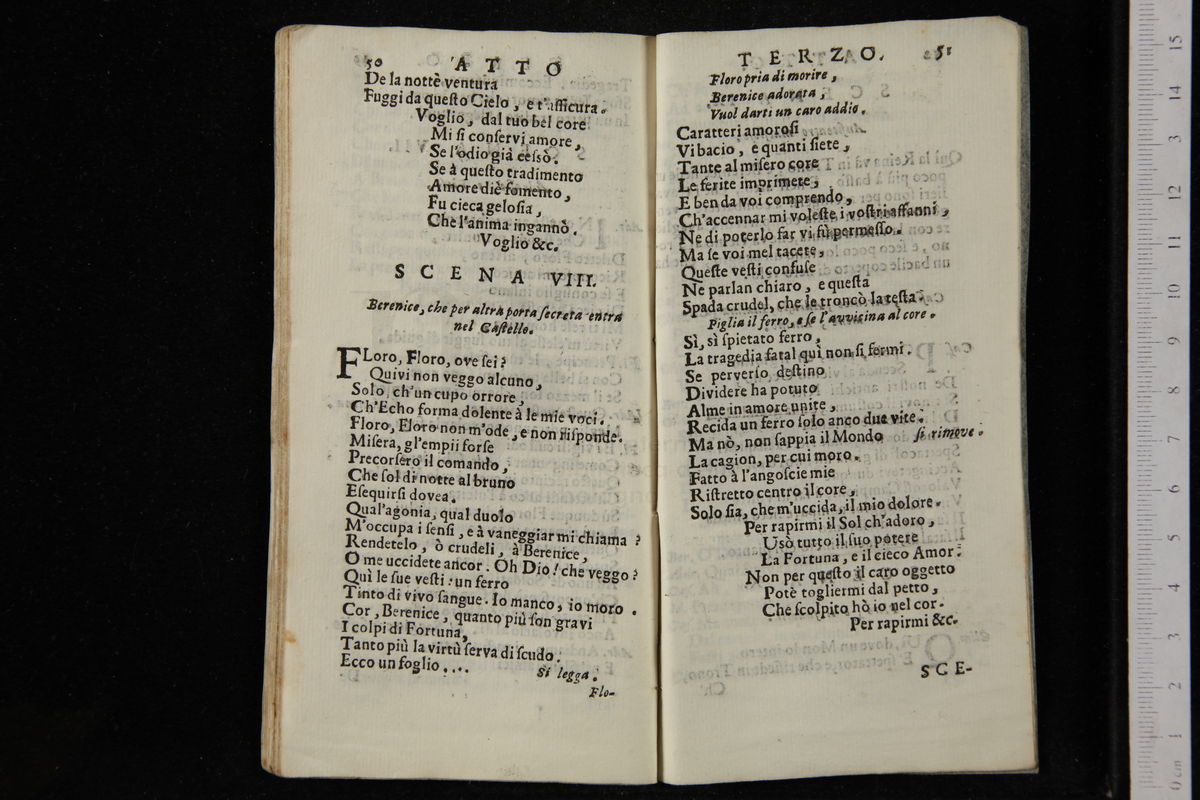 50 ATTO
De la nottè ventura
Fuggi da questo Cielo, e t'assicura.
Voglio, dal tuo bel core
Mi si conservi amore,
Se l'odio già cessò.
Se à questo tradimento
Amore diè fomento,
Fu cieca gelosia,
Che l'anima ingannò.
Voglio &c.
SCENA VIII.
Berenice, che per altra porta secreta entra
nel Castello.
FLoro, Floro, ove sei?
Quivi non veggo alcuno,
Solo, ch'un cupo orrore,
Ch'Echo forma dolente à le mie voci.
Floro, Floro non m'ode, e non risponde.
Misera, gl'empii forse
Precorsero il comando,
Che sol di notte al bruno
Esequirsi dovea.
Qual'agonia, qual duolo
M'occupa i sensi, e à vaneggiar mi chiama?
Rendetelo, ò crudeli, à Berenice,
O me uccidete ancor. Oh Dio! che veggo?
Quì le sue vesti: un ferro
Tinto di vivo sangue. Io manco, io moro.
Cor, Berenice, quanto più son gravi
I colpi di Fortuna,
Tanto più la virtù serva di scudo.
Ecco un foglio.... Si legga.
Flo-
TERZO. 51
Floro pria di morire,
Berenice adorata,
Vuol darti un caro addio.
Caratteri amorosi
Vi bacio, e quanti siete,
Tante al misero core
Le ferite imprimete,
E ben da voi comprendo,
Ch'accennar mi voleste i vostri affanni,
Ne di poterlo far vi fù permesso.
Ma se voi mel tacete,
Queste vesti confuse
Ne parlan chiaro, e questa
Spada crudel, che le troncò la testa.
Piglia il ferro, e se l'avvicina al core.
Sì, sì spietato ferro,
La tragedia fatal quì non si fermi.
Se perverso destino
Dividere ha potuto
Alme in amore unite,
Recida un ferro solo anco due vite.
Ma nò, non sappia il Mondo si rimove.
La cagion, per cui moro.
Fatto à l'angoscie mie
Ristretto centro il core,
Solo sia, che m'uccida, il mio dolore.
Per rapirmi il Sol ch'adoro,
Usò tutto il suo potere
La Fortuna, e il cieco Amor:
Non per questo il caro oggetto
Potè togliermi dal petto,
Che scolpito hò io nel cor.
Per rapirmi &c.
SCE-
0 cm 1 2 3 4 5 6 7 8 9 10 11 12 13 14 15